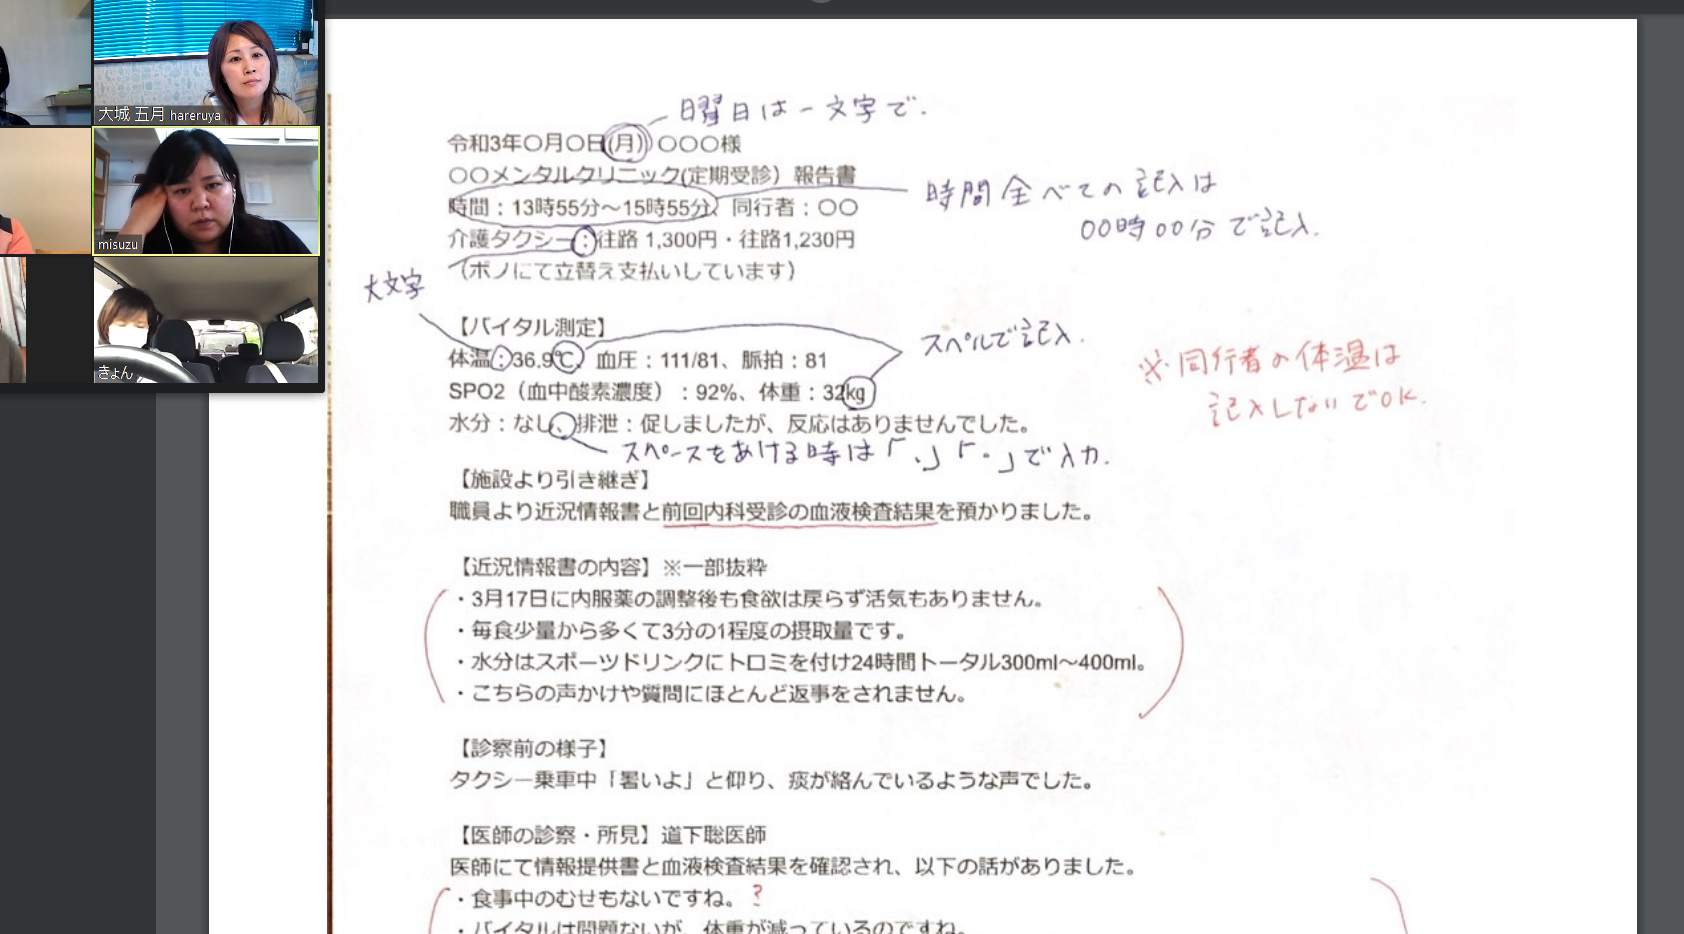 大城 五月 hareruya
misuzu
きょん
曜日は一文字で.
令和3年〇月〇日(月) 〇〇〇様
〇〇メンタルクリニック(定期受診）報告書
時間：13時55分～15時55分、同行者：〇〇
時間全べての記入は
00時00分で記入.
介護タクシー：往路 1,300円・往路1,230円
（ボノにて立替え支払いしています）
大文字
【バイタル測定】
体温：36.9℃、血圧：111/81、脈拍：81
スペルで記入.
SPO2（血中酸素濃度）：92%、体重：32kg
※同行者の体温は
記入しないでOK.
水分：なし、排泄：促しましたが、反応はありませんでした。
スペースをあける時は「、」「。」で入力.
【施設より引き継ぎ】
職員より近況情報書と前回内科受診の血液検査結果を預かりました。
【近況情報書の内容】※一部抜粋
・3月17日に内服薬の調整後も食欲は戻らず活気もありません。
・毎食少量から多くて3分の1程度の摂取量です。
・水分はスポーツドリンクにトロミを付け24時間トータル300ml～400ml。
・こちらの声かけや質問にほとんど返事をされません。
【診察前の様子】
タクシー乗車中「暑いよ」と仰り、痰が絡んでいるような声でした。
【医師の診察・所見】道下聡医師
医師にて情報提供書と血液検査結果を確認され、以下の話がありました。
・食事中のむせもないですね。?
・バイタルは問題ないが、体重が減っているのですね。